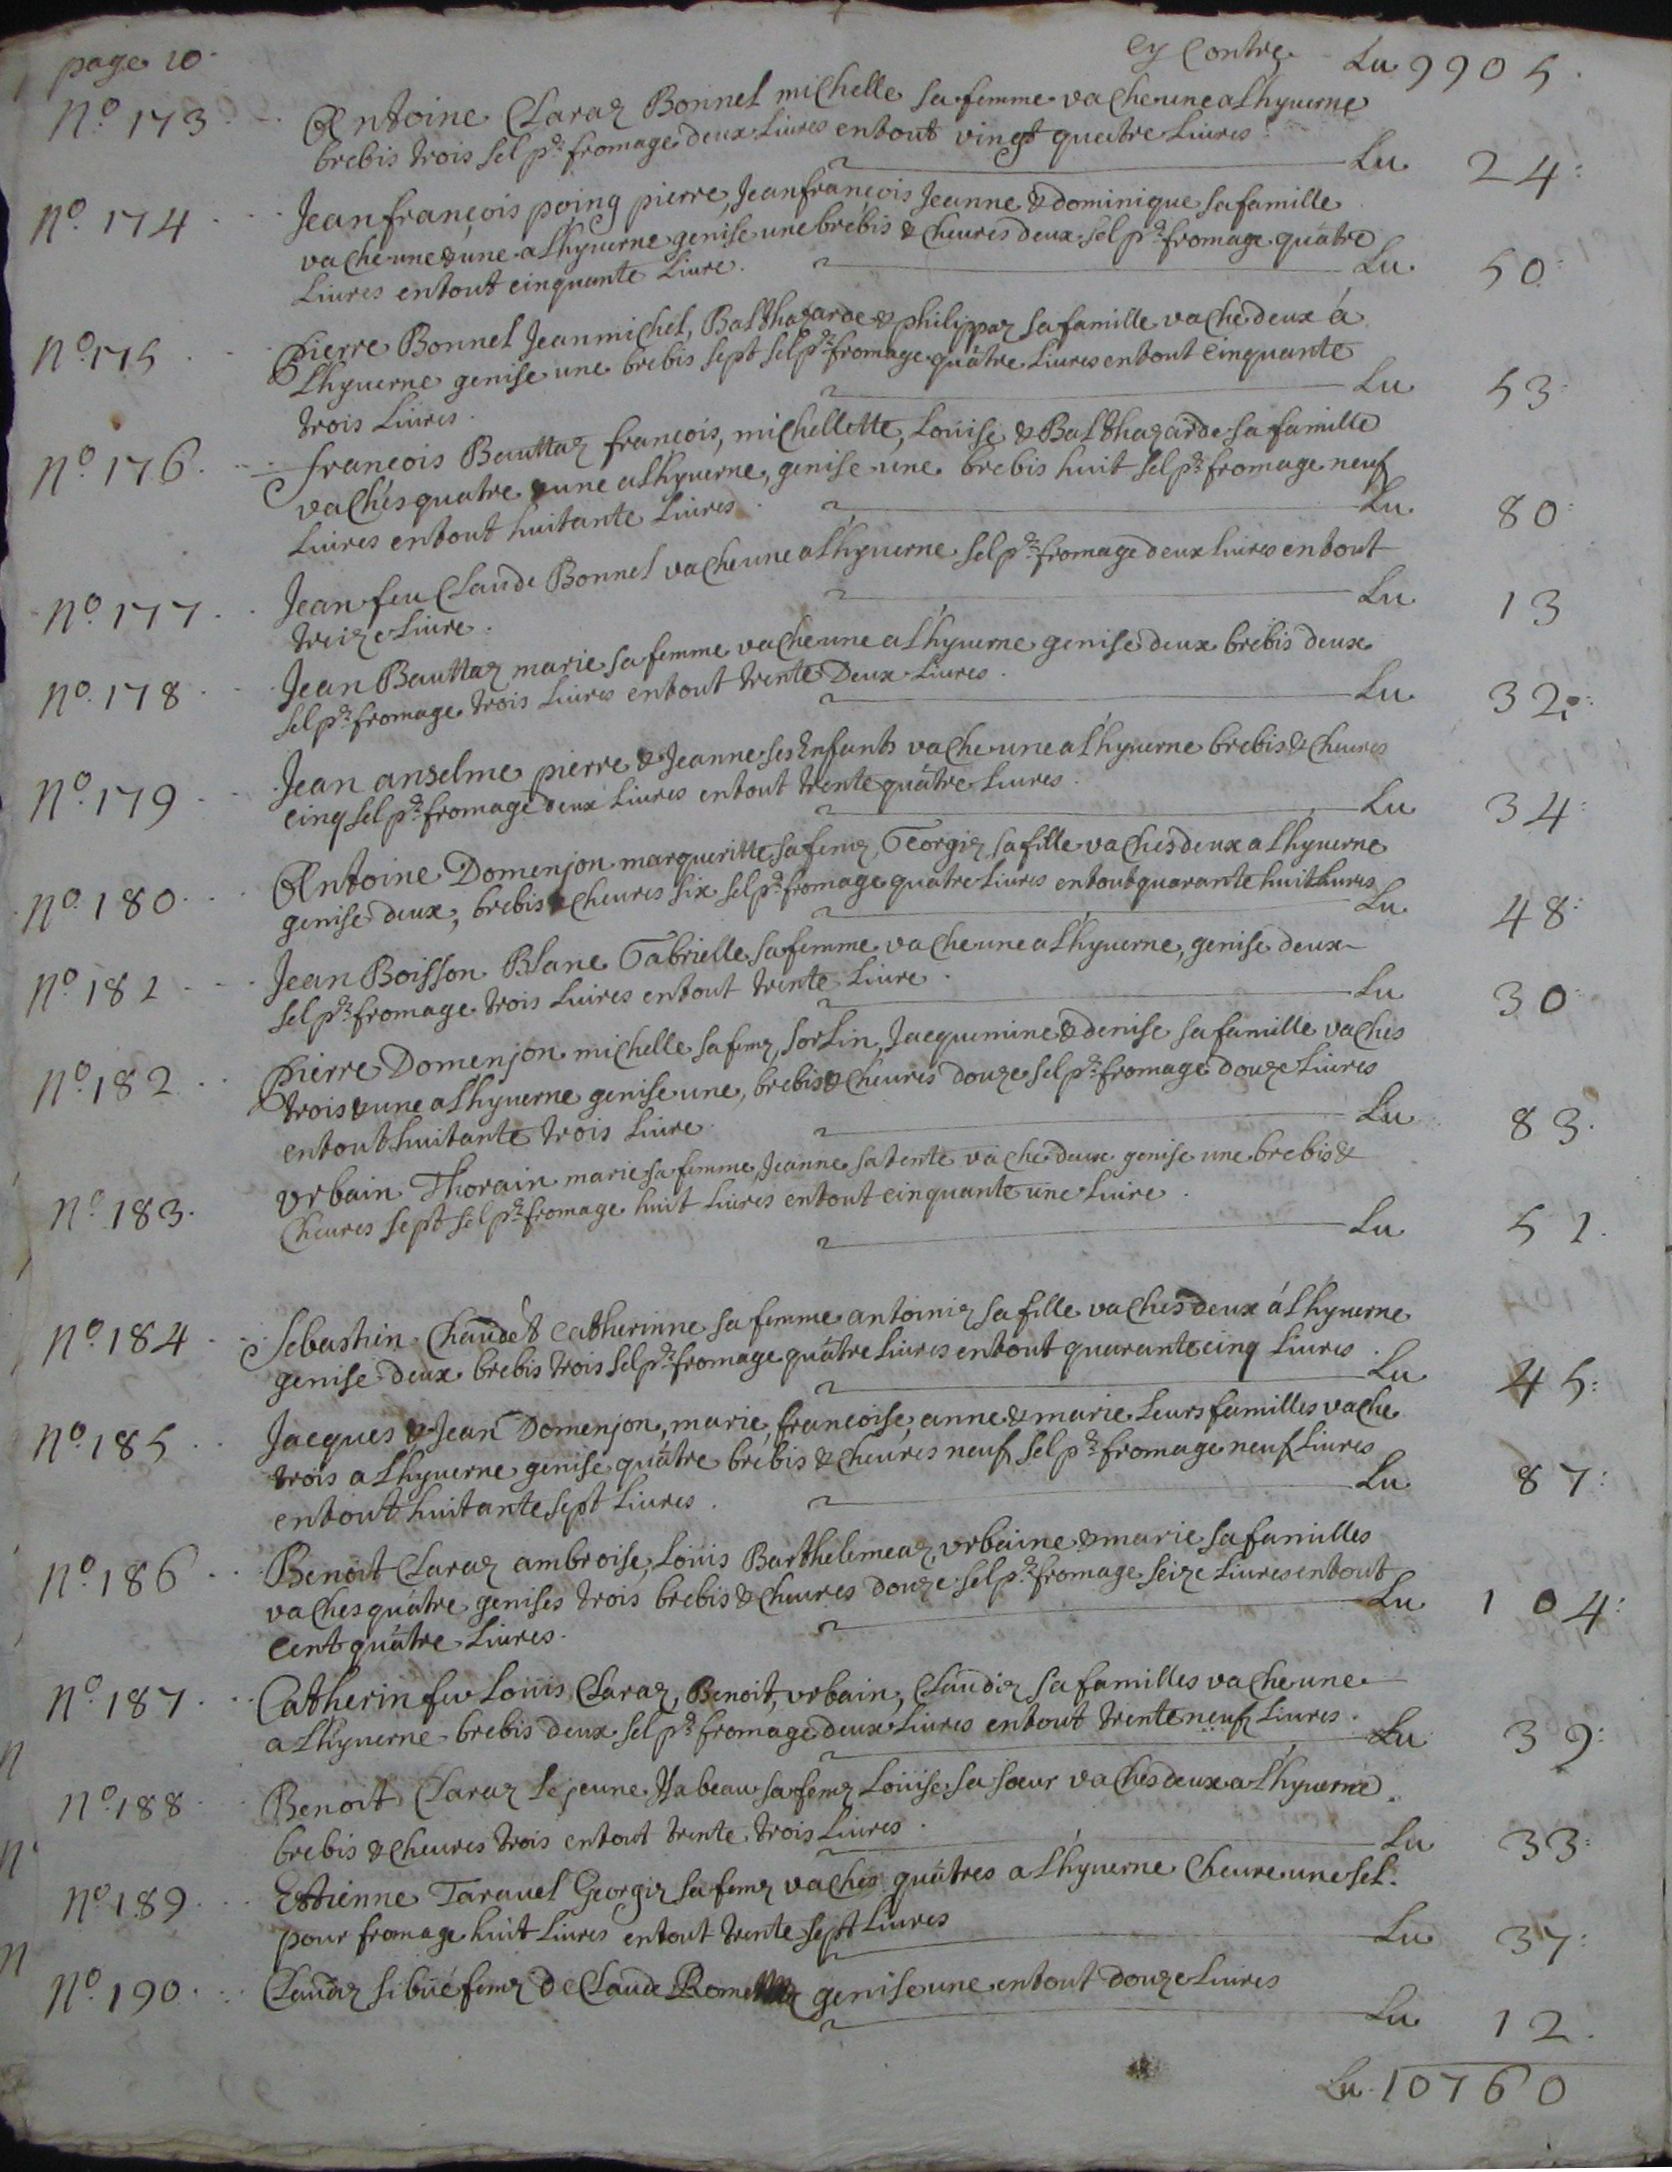 page 10
Cy Contre Lu 9905
No 173 Antoine Claraz Bonnel michelle sa femme vache une a Lhyuerne
brebis trois sel pr fromage deux Liures entout vingt quatre Liures
Lu 24
No 174 Jean françois poing pierre, Jeanfrançois Jeanne & dominique sa famille
vache une & une a Lhyuerne genise une brebis & cheures deux sel pr fromage quatre
Liures entout cinquante Liure. Lu 50
No 175 pierre Bonnel Jean michel, Balthazarde & philippaz sa famille vache deux á
Lhyuerne genise une brebis sept sel pr fromage quatre Liures entout cinquante
trois Liures. Lu 53
No 176 francois Bauttaz francois, michellette, Louise & Balthazarde sa famille
vaches quatre & une a Lhyuerne, genise une brebis huit sel pr fromage neuf
Liures entout huitante Liures. Lu 80
No 177 Jean feu Claude Bonnel vache une a Lhyuerne sel pr fromage deux liures entout
treize Liure. Lu 13
No 178 Jean Bauttaz marie sa femme vache une a Lhyuerne genise deux brebis deux
sel pr fromage trois Liures entout trente Deux Liures. Lu 32
No 179 Jean anselme pierre & Jeanne ses Enfants vache une a Lhyuerne brebis & cheures
cinq sel pr fromage deux Liures entout trente quatre Liures. Lu 34
No 180 Antoine Domenjon margueritte sa femz, Georgiz sa fille vaches deux a Lhyuerne
genise deux, brebis & cheures six sel pr fromage quatre Liures entout quarante huit Liures
Lu 48
No 181 Jean Boisson Blanc Gabrielle sa femme vache une a Lhyuerne, genise deux
sel pr fromage trois Liures entout trente Liure. Lu 30
No 182 pierre Domenjon michelle sa femz, sorlin, Jacquemine & denise sa famille vaches
trois & une a Lhyuerne genise une, brebis & cheures douze sel pr fromage douze Liures
entout huitante trois Liure. Lu 83
No 183 vrbain Thorain marie sa femme, Jeanne sa tente vache deux genise une brebis &
cheures sept sel pr fromage huit Liures entout cinquante une Liure. Lu 51
No 184 Sebastien Chaudet Catherinne sa femme antoiniz sa fille vaches deux á Lhyuerne
genise deux brebis trois sel pr fromage quatre Liures entout quarante cinq Liures.
Lu 45
No 185 Jacques & Jean Domenjon, marie, francoise, anne & marie Leurs familles vache
trois a Lhyuerne genise quatre brebis & cheures neuf sel pr fromage neuf Liures
entout huitante sept Liures. Lu 87
No 186 Benoit Claraz ambroise, Louis Barthelemeaz, vrbaine & marie sa familles
vaches quatre genises trois brebis & cheures douze sel pr fromage seize Liures entout
cent quatre Liures. Lu 104
No 187 Catherin feu Louis Claraz, Benoit, vrbain, Claudiz sa familles vache une
a Lhyuerne brebis deux sel pr fromage deux Liures entout trente neuf Liures. Lu 39
No 188 Benoit Claraz le jeune Ysabeau sa femz Louise sa soeur vaches deux a Lhyuerne
brebis & cheures trois entout trente trois Liures. Lu 33
No 189 Estienne Tarauel Georgiz sa femz vaches quatres a Lhyuerne cheure une sel
pour fromage huit Liures entout trente sept Liures Lu 37
No 190 Claudiz sibué femz de Claude genise une entout douze Liures
Lu 12
Lu 10760